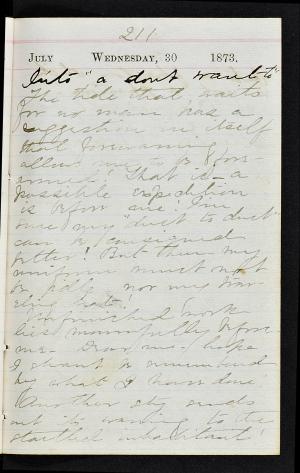 211
JULY WEDNESDAY, 30 1873.
Into "a dont want to"
The tide that waits
for no man has a
suggestion in itself
that forewarning
allow me to B fore-
armed! That is - a
possible expedition
is Before me! I'm
sure my "dust to dust"
can B consigned
after! But then my
uniform must not
be pale nor my
hate!
Unfinished work
lies mournfully Before
me - Dear me. I hope
I shant B remembered
by what I have done.
Another sends
out its warning to the
startled inhabitant!